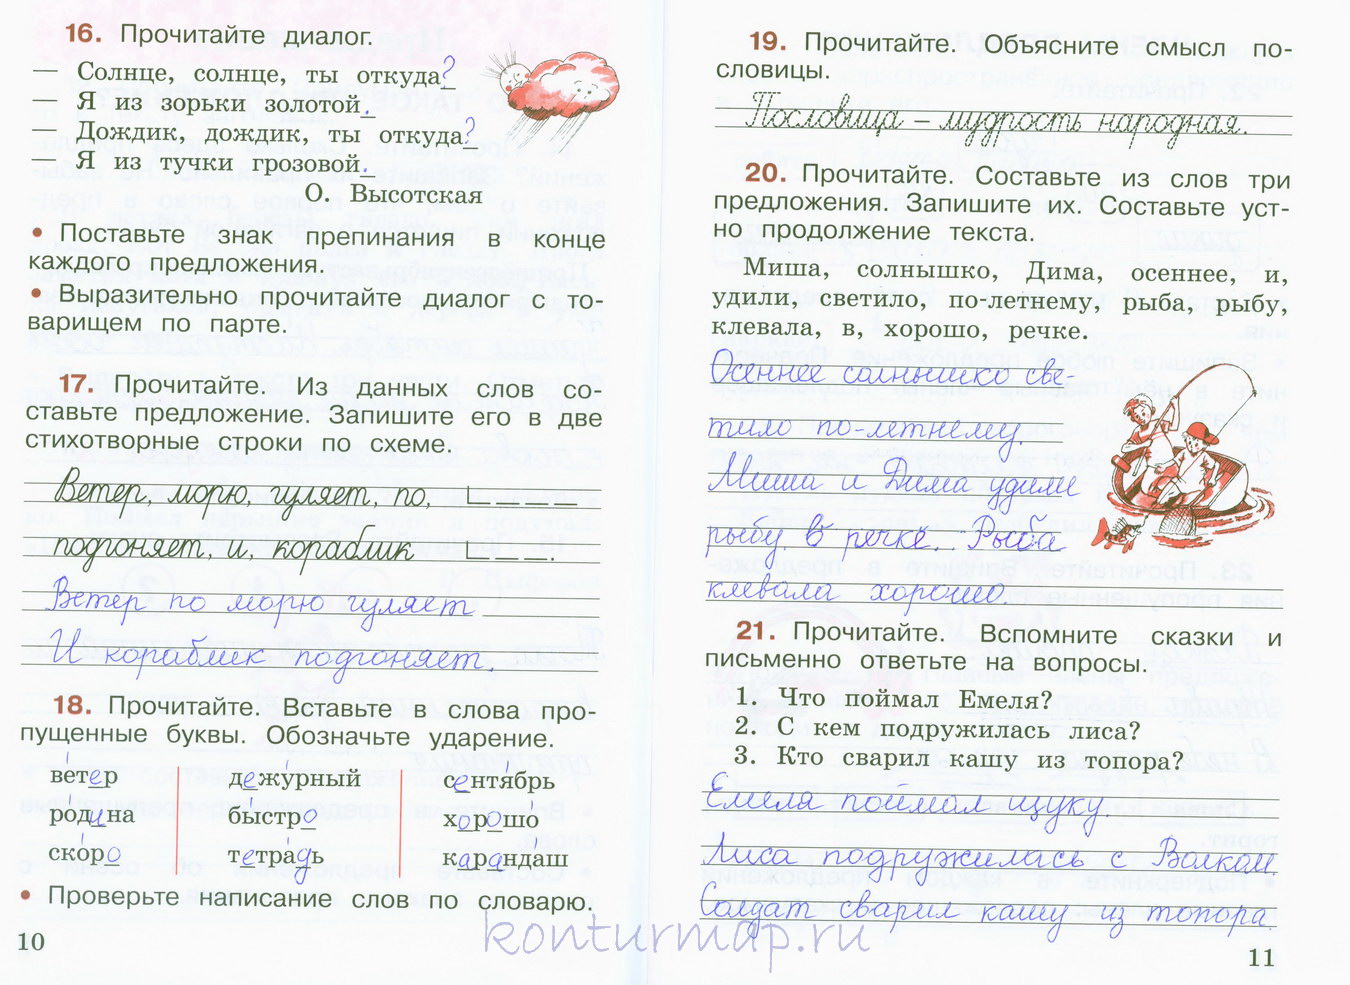 16. Прочитайте диалог.
— Солнце, солнце, ты откуда?
— Я из зорьки золотой.
— Дождик, дождик, ты откуда?
— Я из тучки грозовой.
О. Высотская
• Поставьте знак препинания в конце
каждого предложения.
• Выразительно прочитайте диалог с то-
варищем по парте.
17. Прочитайте. Из данных слов со-
ставьте предложение. Запишите его в две
стихотворные строки по схеме.
Ветер, морю, гуляет, по,
подгоняет, и, кораблик
Ветер по морю гуляет
И кораблик подгоняет.
18. Прочитайте. Вставьте в слова про-
пущенные буквы. Обозначьте ударение.
ветер дежурный сентябрь
родина быстро хорошо
скоро тетрадь карандаш
• Проверьте написание слов по словарю.
10
19. Прочитайте. Объясните смысл по-
словицы.
Пословица – мудрость народная.
20. Прочитайте. Составьте из слов три
предложения. Запишите их. Составьте уст-
но продолжение текста.
Миша, солнышко, Дима, осеннее, и,
удили, светило, по-летнему, рыба, рыбу,
клевала, в, хорошо, речке.
Осеннее солнышко све-
тило по-летнему.
Миша и Дима удили
рыбу в речке. Рыба
клевала хорошо.
21. Прочитайте. Вспомните сказки и
письменно ответьте на вопросы.
1. Что поймал Емеля?
2. С кем подружилась лиса?
3. Кто сварил кашу из топора?
Емеля поймал щуку.
Лиса подружилась с Волком
Солдат сварил кашу из топора.
11
konturmap.ru